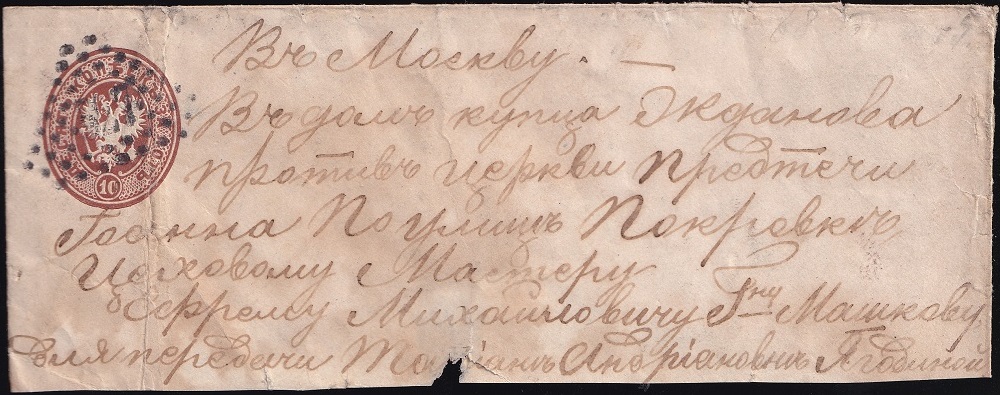 Въ Москву. —
Въ домъ купца Жданова
противъ церкви Предтечи
Іоанна По улицѣ Покровкѣ
Цеховому Мастеру
Ефрему Михайловичу Гну Машкову
для передачи Андріановнѣ Ягодиной
10